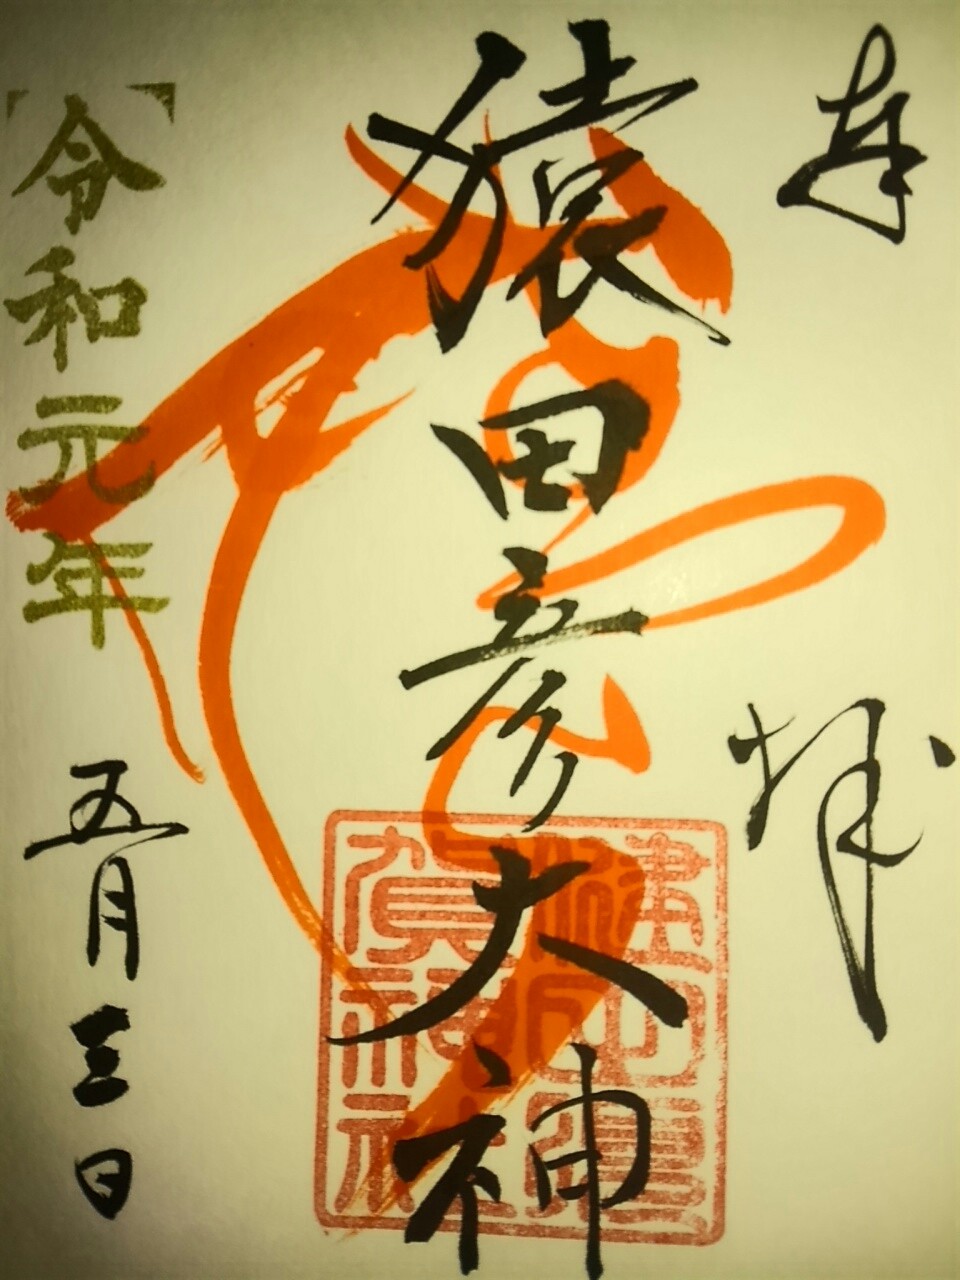 奉拝
猿田彦大神
賀神社
令和元年五月三日